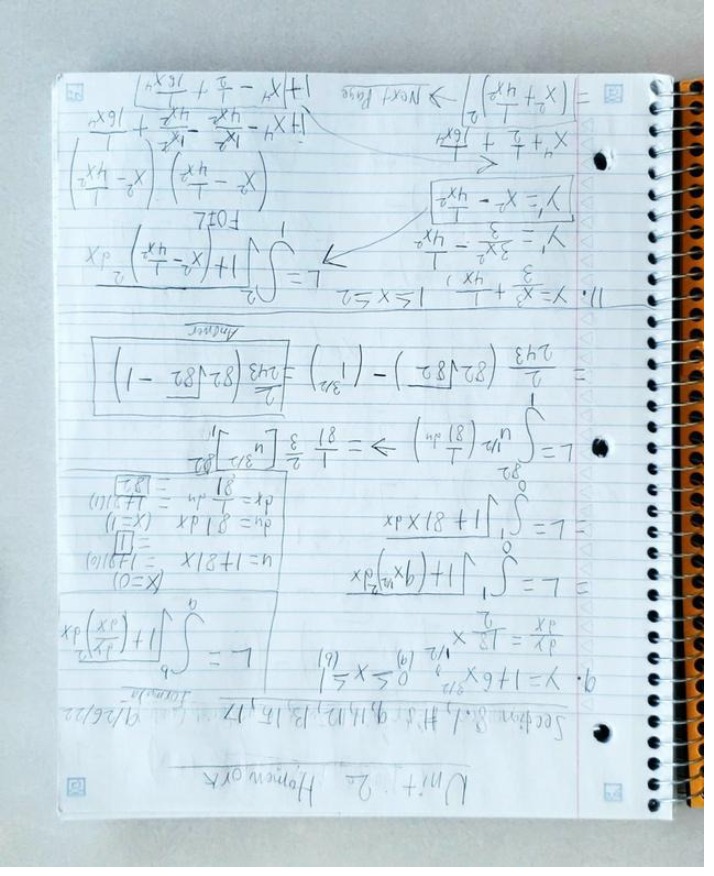 Unit 2 Homework
Section 8.1, #'s 9, 11, 12, 13, 15, 17 9/26/22
9. y = 1 + 6x^(3/2), 0 ≤ x ≤ 1
(a) (b)
dy/dx = 18/2 x^(1/2)
Formula =
L = ∫_a^b √(1 + (dy/dx)^2) dx
= L = ∫_0^1 √(1 + (9x^(1/2))^2) dx
= L = ∫_0^1 √(1 + 81x) dx
(x=0)
u = 1 + 81x = 1 + 81(0)
= 1
du = 81 dx (x=1)
dx = 1/81 du = 1 + 81(1)
= 82
L = ∫_1^82 u^(1/2) (1/81 du) → = 1/81 2/3 [u^(3/2)]_1^82
= 2/243 (82√82) - (1^(3/2)) = 2/243 (82√82 - 1)
Answer
11. y = x^3/3 + 1/4x, 1 ≤ x ≤ 2
y' = 3x^2/3 - 1/4x^2
y' = x^2 - 1/4x^2
L = ∫_1^2 √(1 + (x^2 - 1/4x^2)^2) dx
FOIL
(x^2 - 1/4x^2) (x^2 - 1/4x^2)
1 + x^4 - 1x^2/4x^2 - 1x^2/4x^2 + 1/16x^4
1 + x^4 - 1/2 + 1/16x^4
x^4 + 1/2 + 1/16x^4
= (x^2 + 1/4x^2)^2 → Next Page